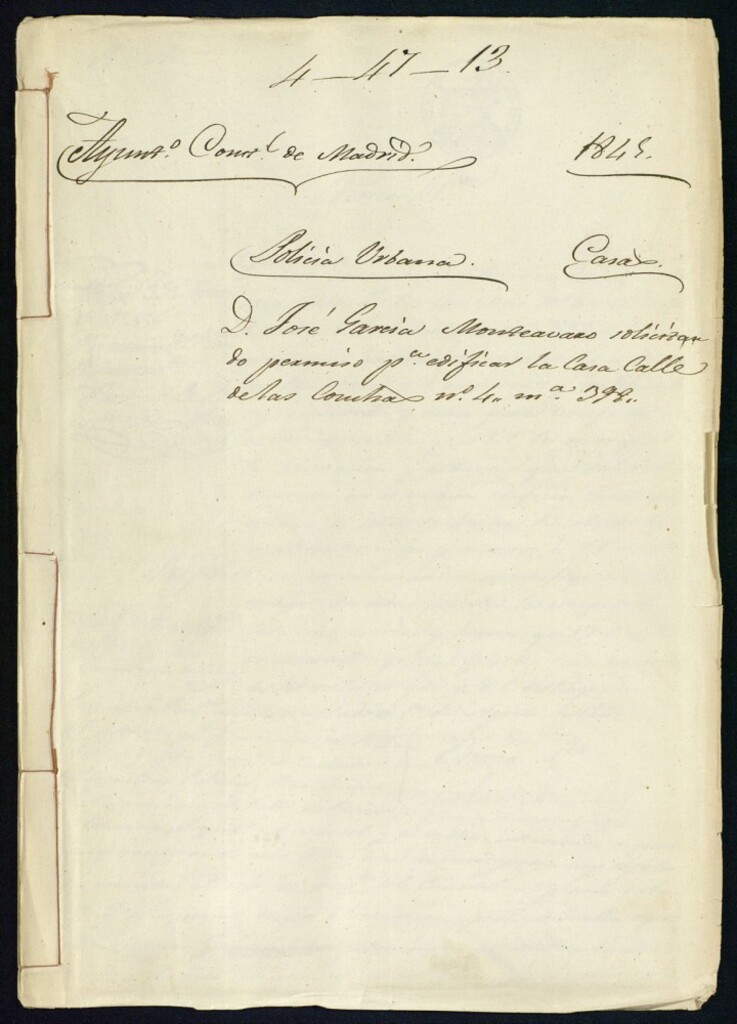 4-47-13.
Ayunt.º Const.l de Madrid. 1845.
Policia Urbana. Casas.
D. José Garcia Monteavaro solicitan
do permiso p.a edificar la Casa Calle
de las Conchas n.º 4. m.a 398.